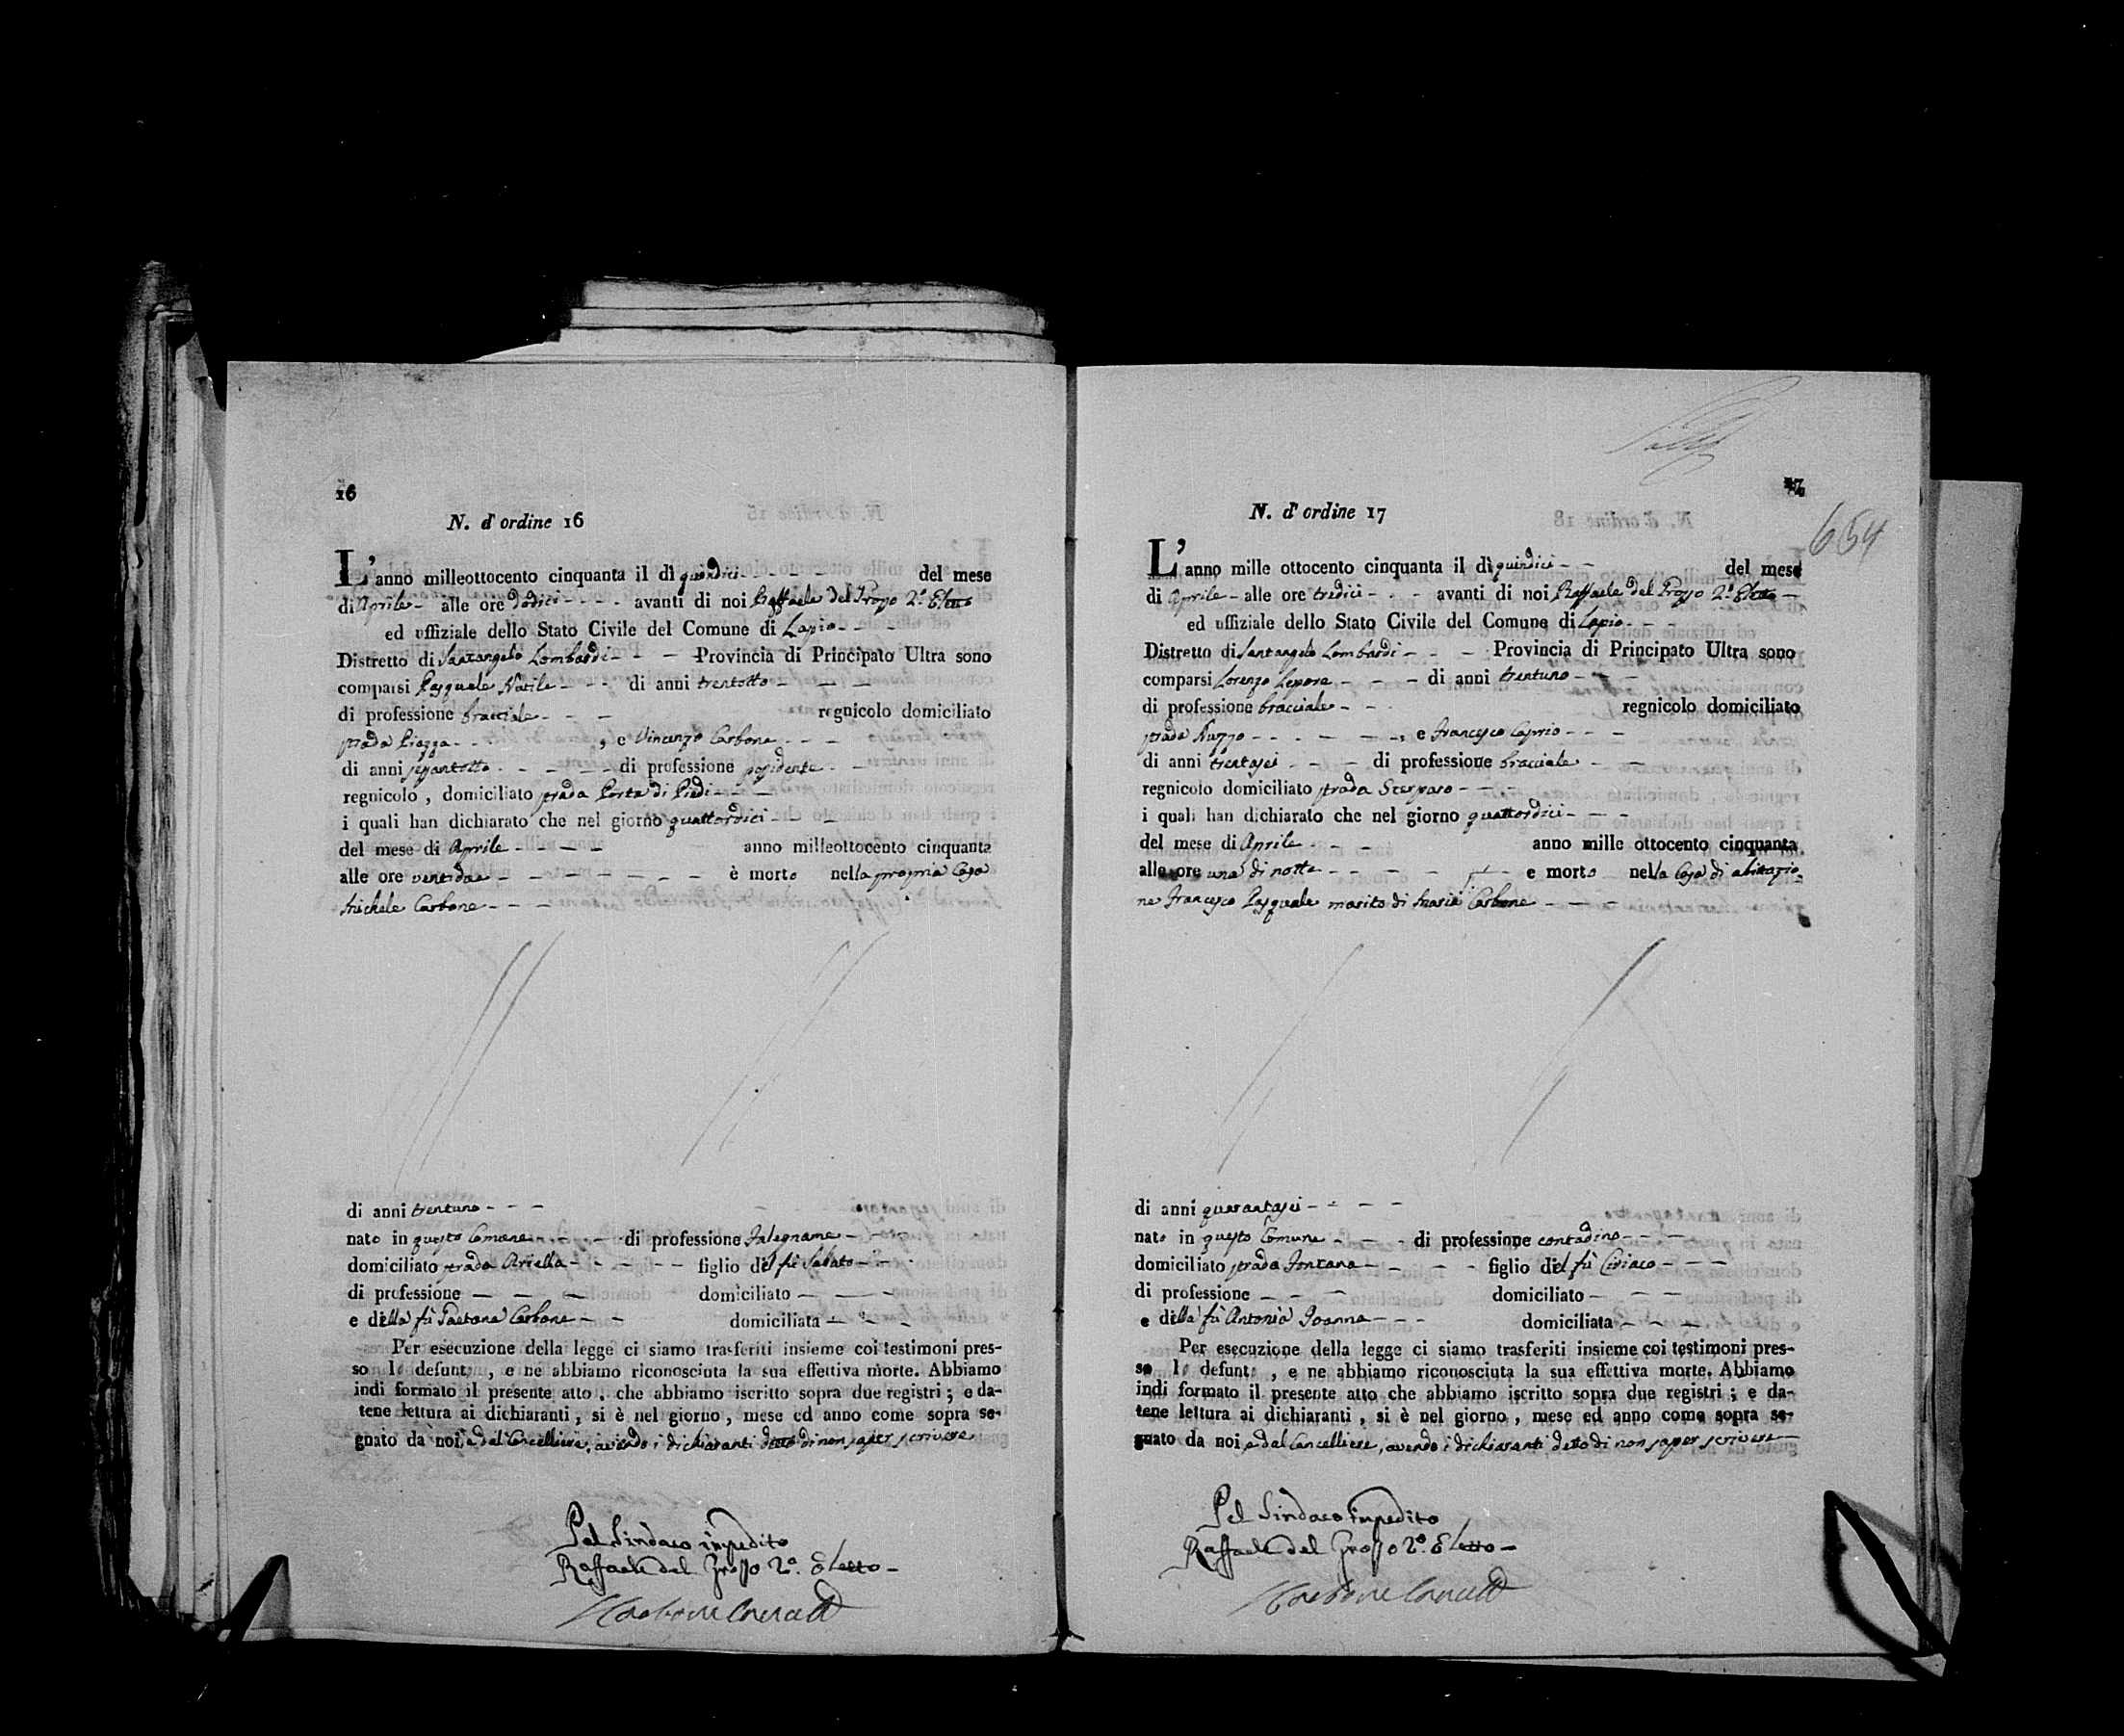 16
N. d'ordine 16
L'anno milleottocento cinquanta il dì quindici - - - - - del mese
di Aprile - alle ore dodici - - - - avanti di noi Raffaele del Grosso 2.° Eletto
ed uffiziale dello Stato Civile del Comune di Lapio - - -
Distretto di Santangelo Lombardi - - - Provincia di Principato Ultra sono
comparsi Pasquale Natile - - - di anni trentotto - - -
di professione bracciale - - - regnicolo domiciliato
strada Piazza - - , e Vincenzo Carbone - - -
di anni sessantotto - - - - - di professione possidente - -
regnicolo , domiciliato strada Porta di Piedi - - -
i quali han dichiarato che nel giorno quattordici - - -
del mese di Aprile - - - - anno milleottocento cinquanta
alle ore ventidue - - - - - - - è morto nella propria Casa
Michele Carbone - - -
di anni trentuno - - -
nato in questo Comune - - - di professione Falegname - -
domiciliato strada Ariella - - - - - figlio del fù Sabato - - -
di professione - - - domiciliato - - -
e della fù Gaetana Carbone - - domiciliata - - -
Per esecuzione della legge ci siamo trasferiti insieme coi testimoni pres-
so lo defunto , e ne abbiamo riconosciuta la sua effettiva morte. Abbiamo
indi formato il presente atto , che abbiamo iscritto sopra due registri ; e da-
tene lettura ai dichiaranti , si è nel giorno , mese ed anno come sopra se-
gnato da noi, e dal Cancelliere, avendo i dichiaranti detto di non saper scrivere
Pel Sindaco impedito
Raffaele del Grosso 2.° Eletto -
Carbone Cancell
17
654
N. d' ordine 17
L'anno mille ottocento cinquanta il dì quindici - - del mese
di Aprile - alle ore tredici - - - avanti di noi Raffaele del Grosso 2.° Eletto -
ed uffiziale dello Stato Civile del Comune di Lapio - - -
Distretto di Santangelo Lombardi - - - Provincia di Principato Ultra sono
comparsi Lorenzo Lepore - - - di anni trentuno - - -
di professione bracciale - - - regnicolo domiciliato
strada - - - - - , e Francesco Caprio - - -
di anni trentasei - - - di professione bracciale - -
regnicolo domiciliato strada - - -
i quali han dichiarato che nel giorno quattordici - - -
del mese di Aprile - - - anno mille ottocento cinquanta
alle ore una di notte - - - - - e morto nella Casa di abitazio=
ne Francesco Pasquale marito di Maria Carbone - - -
di anni quarantasei - - - -
nato in questo Comune - - - di professione contadino - - -
domiciliato strada Fontana - - - - figlio del fù Ciriaco - - -
di professione - - - domiciliato - - -
e della fù Antonia Ioanna - - - domiciliata - - -
Per esecuzione della legge ci siamo trasferiti insieme coi testimoni pres-
so lo defunto , e ne abbiamo riconosciuta la sua effettiva morte. Abbiamo
indi formato il presente atto che abbiamo iscritto sopra due registri ; e da-
tene lettura ai dichiaranti , si è nel giorno , mese ed anno come sopra se-
gnato da noi, e dal Cancelliere, avendo i dichiaranti detto di non saper scrivere -
Pel Sindaco impedito
Raffaele del Grosso 2.° Eletto -
Carbone Cancell